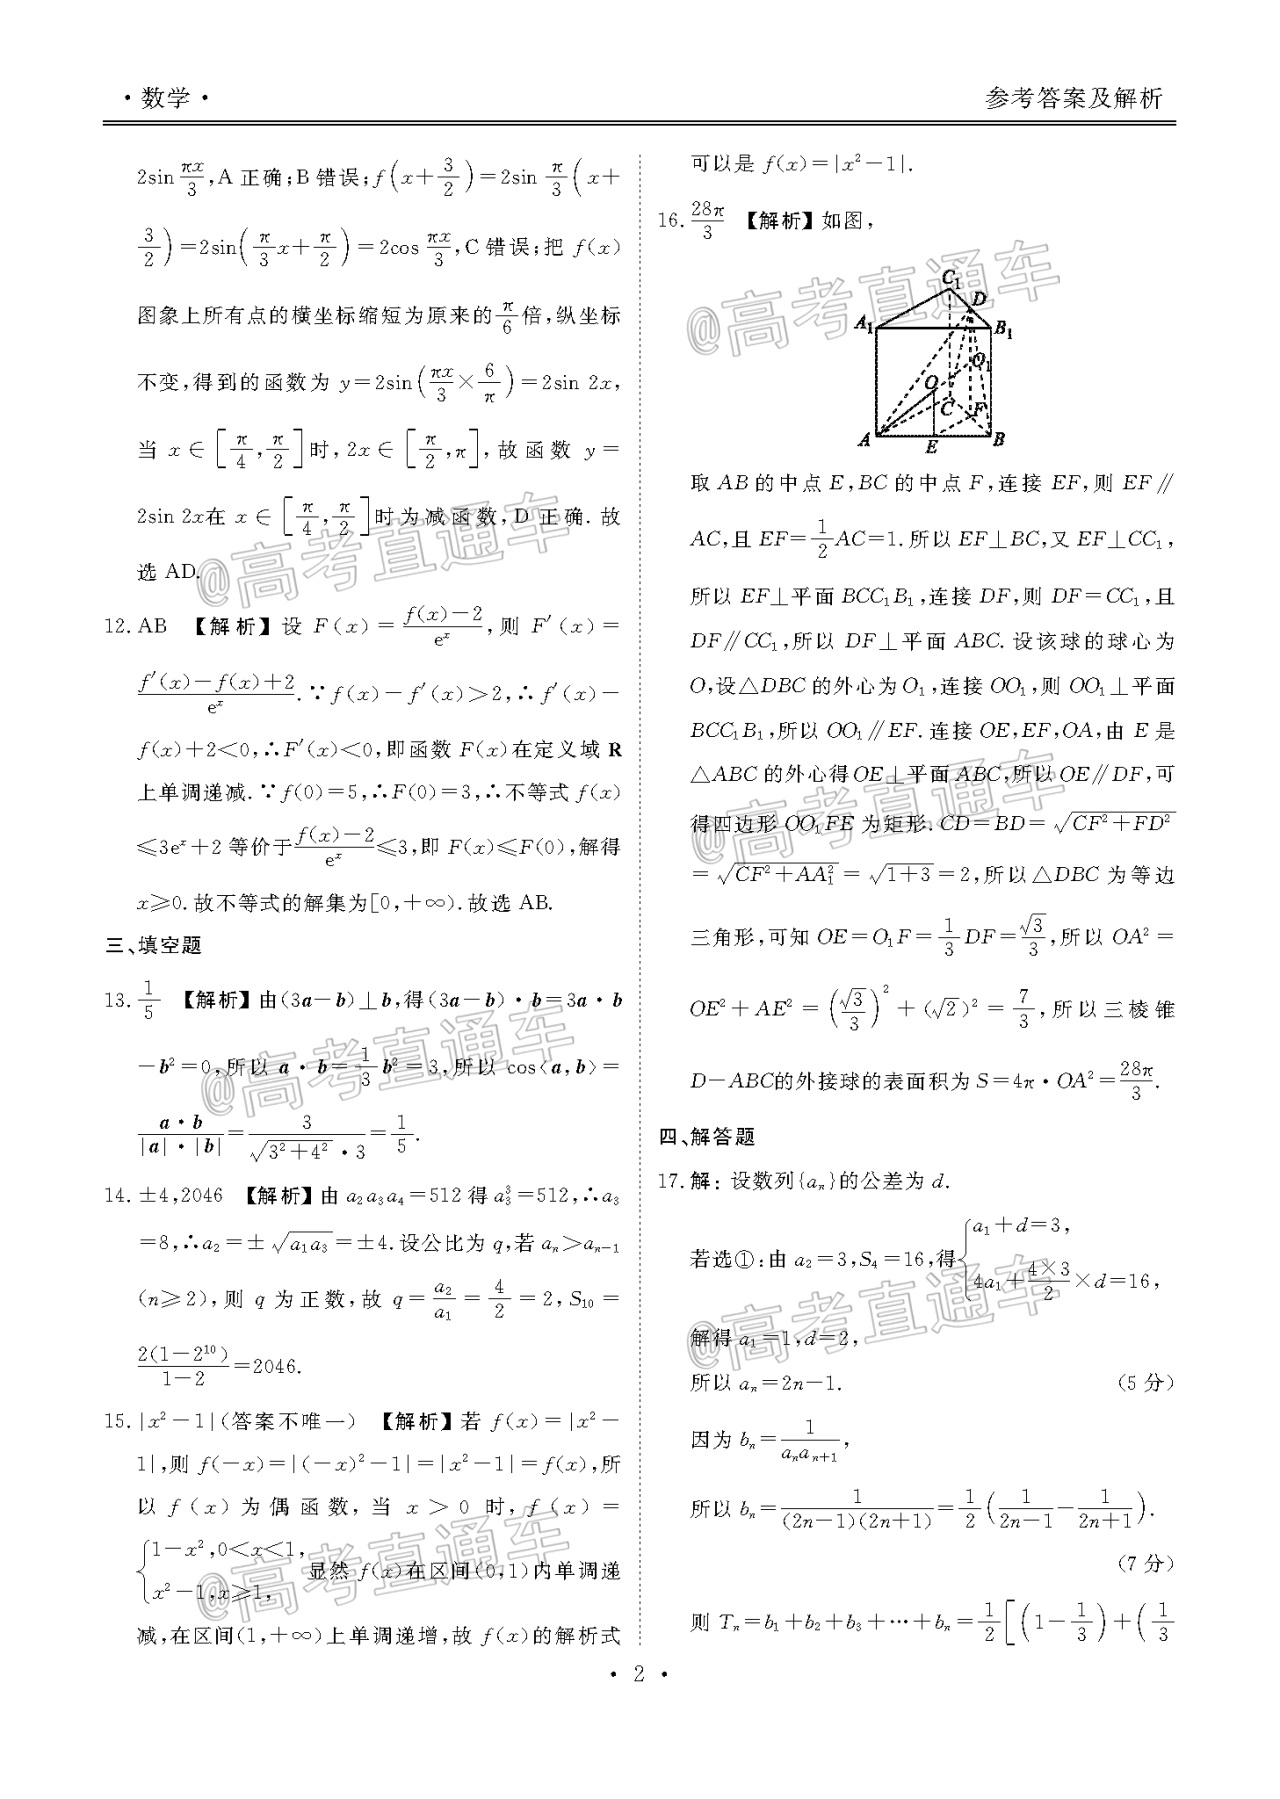 ·数学·
参考答案及解析
2sin πx/3,A 正确;B 错误;f(x+3/2)=2sin π/3(x+
3/2)=2sin(π/3 x+π/2)=2cos πx/3,C 错误;把 f(x)
图象上所有点的横坐标缩短为原来的 π/6 倍,纵坐标
不变,得到的函数为 y=2sin(πx/3×6/π)=2sin 2x,
当 x∈[π/4,π/2]时,2x∈[π/2,π],故函数 y=
2sin 2x在 x∈[π/4,π/2]时为减函数,D 正确.故
选 AD.
12. AB 【解析】设 F(x)=(f(x)-2)/eˣ,则 F′(x)=
(f′(x)-f(x)+2)/eˣ.∵f(x)-f′(x)>2,∴f′(x)-
f(x)+2<0,∴F′(x)<0,即函数 F(x)在定义域 R
上单调递减.∵f(0)=5,∴F(0)=3,∴不等式 f(x)
≤3eˣ+2 等价于(f(x)-2)/eˣ≤3,即 F(x)≤F(0),解得
x≥0.故不等式的解集为[0,+∞).故选 AB.
三、填空题
13. 1/5 【解析】由(3a-b)⊥b,得(3a-b)·b=3a·b
-b²=0,所以 a·b=1/3 b²=3,所以 cos⟨a,b⟩=
a·b/(|a|·|b|)=3/(√(3²+4²)·3)=1/5.
14. ±4,2046 【解析】由 a₂a₃a₄=512 得 a₃³=512,∴a₃
=8,∴a₂=±√(a₁a₃)=±4.设公比为 q,若 aₙ>aₙ₋₁
(n≥2),则 q 为正数,故 q=a₂/a₁=4/2=2,S₁₀=
2(1-2¹⁰)/(1-2)=2046.
15. |x²-1|(答案不唯一) 【解析】若 f(x)=|x²-
1|,则 f(-x)=|(-x)²-1|=|x²-1|=f(x),所
以 f(x)为偶函数,当 x>0 时,f(x)=
{1-x²,0<x<1,
x²-1,x≥1, 显然 f(x)在区间(0,1)内单调递
减,在区间(1,+∞)上单调递增,故 f(x)的解析式
可以是 f(x)=|x²-1|.
16. 28π/3 【解析】如图,
C₁
D
A₁
B₁
O
O₁
C
F
A
E
B
取 AB 的中点 E,BC 的中点 F,连接 EF,则 EF∥
AC,且 EF=1/2 AC=1.所以 EF⊥BC,又 EF⊥CC₁,
所以 EF⊥平面 BCC₁B₁,连接 DF,则 DF=CC₁,且
DF∥CC₁,所以 DF⊥平面 ABC.设该球的球心为
O,设△DBC 的外心为 O₁,连接 OO₁,则 OO₁⊥平面
BCC₁B₁,所以 OO₁∥EF.连接 OE,EF,OA,由 E 是
△ABC 的外心得 OE⊥平面 ABC,所以 OE∥DF,可
得四边形 OO₁FE 为矩形.CD=BD=√(CF²+FD²)
=√(CF²+AA₁²)=√(1+3)=2,所以△DBC 为等边
三角形,可知 OE=O₁F=1/3 DF=√3/3,所以 OA²=
OE²+AE²=(√3/3)²+(√2)²=7/3,所以三棱锥
D-ABC的外接球的表面积为 S=4π·OA²=28π/3.
四、解答题
17. 解:设数列{aₙ}的公差为 d.
若选①:由 a₂=3,S₄=16,得{a₁+d=3,
4a₁+(4×3)/2×d=16,
解得 a₁=1,d=2,
所以 aₙ=2n-1. (5 分)
因为 bₙ=1/(aₙaₙ₊₁),
所以 bₙ=1/((2n-1)(2n+1))=1/2(1/(2n-1)-1/(2n+1)).
(7 分)
则 Tₙ=b₁+b₂+b₃+…+bₙ=1/2[(1-1/3)+(1/3
·2·
@高考直通车
@高考直通车
@高考直通车
@高考直通车
@高考直通车
@高考直通车